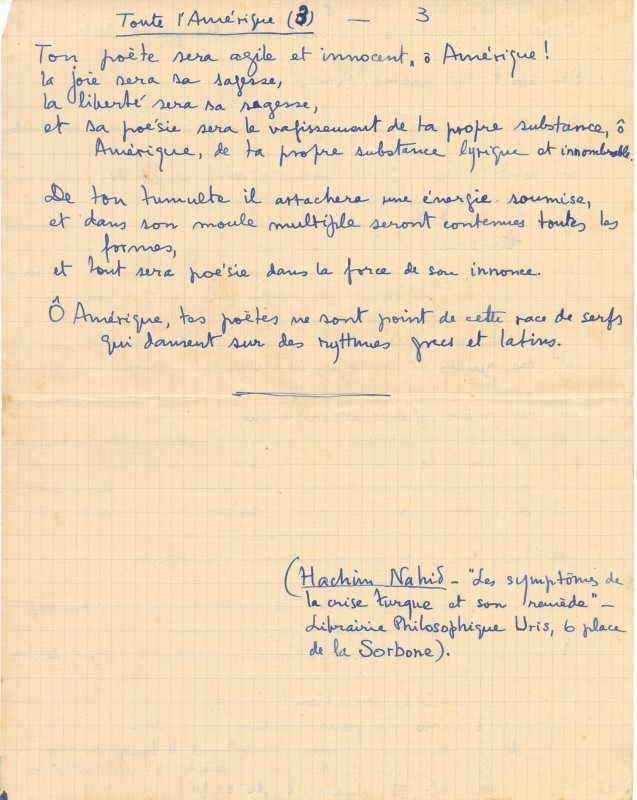 Toute l'Amérique (3) — 3
Ton poète sera agile et innocent, ô Amérique!
la joie sera sa sagesse,
la liberté sera sa sagesse,
et sa poésie sera le vagissement de ta propre substance, ô
Amérique, de ta propre substance lyrique et innombrable.
De ton tumulte il arrachera une énergie soumise,
et dans son moule multiple seront contenues toutes les
formes,
et tout sera poésie dans la force de son innonce.
Ô Amérique, tes poètes ne sont point de cette race de serfs
qui dansent sur des rythmes grecs et latins.
(Hachim Nahid – "Les symptômes de
la crise turque et son remède" –
Librairie Philosophique Uris, 6 place
de la Sorbone).